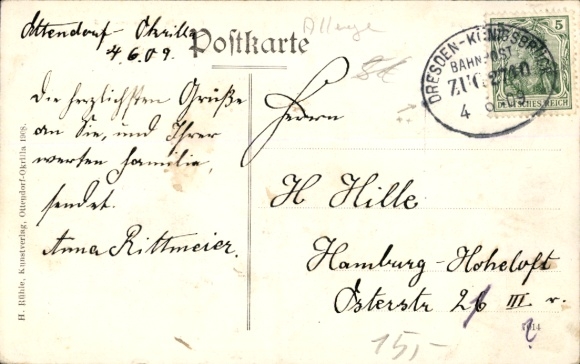 Ottendorf-Okrilla
4.6.09.
Postkarte
Die herzlichsten Grüße
an Sie, und Ihrer
werten Familie,
sendet.
Anna Rittmeier.
H. Rühle, Kunstverlag, Ottendorf-Okrilla 1908.
DRESDEN-KÖNIGSBRÜCK
BAHNPOST
ZUG 2740
4 6 09
5
DEUTSCHES REICH
Herrn
H Hille
Hamburg-Hoheloft
Osterstr 26 III r.
7614
15,-